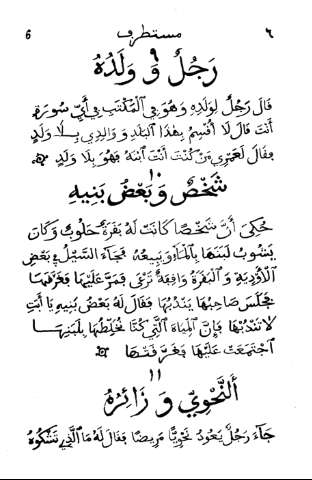 ٦ مستطرف 6
٩
رَجُلٌ وَ وَلَدُهُ
قَالَ رَجُلٌ لِوَلَدِهِ وَهُوَ فِي الْمَكْتَبِ فِي أَيِّ سُورَةٍ
أَنْتَ قَالَ لَا أُقْسِمُ بِهٰذَا الْبَلَدِ وَ وَالِدِي بِلَا وَلَدٍ
فَقَالَ لَعَمْرِي مَنْ كُنْتَ أَنْتَ ابْنَهُ فَهُوَ بِلَا وَلَدٍ
١٠
شَخْصٌ وَ بَعْضُ بَنِيهِ
حُكِيَ أَنَّ شَخْصًا كَانَتْ لَهُ بَقَرَةٌ حَلُوبٌ وَكَانَ
يَشُوبُ لَبَنَهَا بِالْمَاءِ وَيَبِيعُهُ فَجَاءَ السَّيْلُ فِي بَعْضِ
الْأَوْدِيَةِ وَ الْبَقَرَةُ وَاقِفَةٌ تَرْعَى فَمَرَّ عَلَيْهَا فَغَرَّقَهَا
فَجَلَسَ صَاحِبُهَا يَنْدُبُهَا فَقَالَ لَهُ بَعْضُ بَنِيهِ يَا أَبَتِ
لَا تَنْدُبْهَا فَإِنَّ الْمِيَاهَ الَّتِي كُنَّا نَخْلِطُهَا بِلَبَنِهَا
اجْتَمَعَتْ عَلَيْهَا فَغَرَّقَتْهَا
١١
أَلنَّحْوِيُّ وَ زَائِرُهُ
جَاءَ رَجُلٌ يَعُودُ نَحْوِيًّا مَرِيضًا فَقَالَ لَهُ مَا الَّذِي تَشْكُوهُ